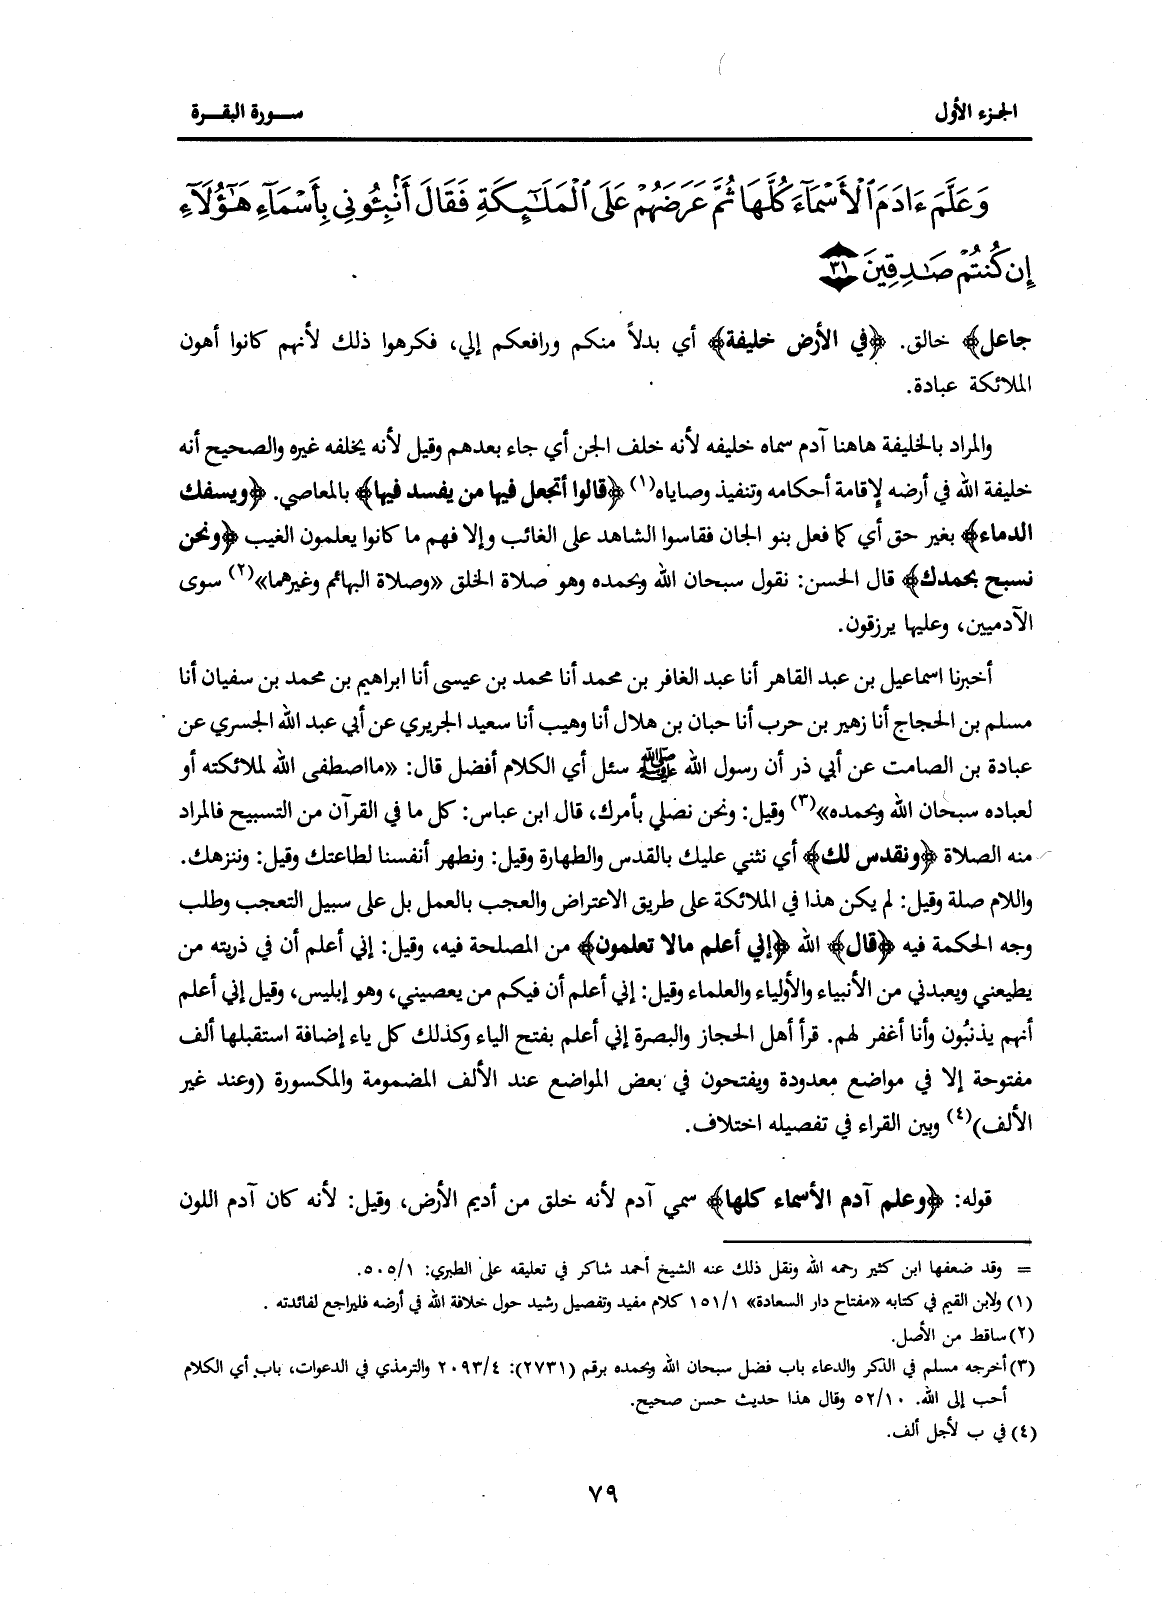 الجزء الأول
ســورة البقــرة
وَعَلَّمَ ءَادَمَ ٱلْأَسْمَآءَ كُلَّهَا ثُمَّ عَرَضَهُمْ عَلَى ٱلْمَلَـٰٓئِكَةِ فَقَالَ أَنۢبِـُٔونِى بِأَسْمَآءِ هَـٰٓؤُلَآءِ
إِن كُنتُمْ صَـٰدِقِينَ ﴿٣١﴾
جاعل﴾ خالق. ﴿في الأرض خليفة﴾ أي بدلاً منكم ورافعكم إلي، فكرهوا ذلك لأنهم كانوا أهون
الملائكة عبادة.
والمراد بالخليفة هاهنا آدم سماه خليفه لأنه خلف الجن أي جاء بعدهم وقيل لأنه يخلفه غيره والصحيح أنه
خليفة الله في أرضه لإقامة أحكامه وتنفيذ وصاياه(١) ﴿قالوا أتجعل فيها من يفسد فيها﴾ بالمعاصي. ﴿ويسفك
الدماء﴾ بغير حق أي كما فعل بنو الجان فقاسوا الشاهد على الغائب وإلا فهم ما كانوا يعلمون الغيب ﴿ونحن
نسبح بحمدك﴾ قال الحسن: نقول سبحان الله وبحمده وهو صلاة الخلق «وصلاة البهائم وغيرهما»(٢) سوى
الآدميين، وعليها يرزقون.
أخبرنا اسماعيل بن عبد القاهر أنا عبد الغافر بن محمد أنا محمد بن عيسى أنا ابراهيم بن محمد بن سفيان أنا
مسلم بن الحجاج أنا زهير بن حرب أنا حبان بن هلال أنا وهيب أنا سعيد الجريري عن أبي عبد الله الجسري عن
عبادة بن الصامت عن أبي ذر أن رسول الله ﷺ سئل أي الكلام أفضل قال: «مااصطفى الله لملائكته أو
لعباده سبحان الله وبحمده»(٣) وقيل: ونحن نصلي بأمرك، قال ابن عباس: كل ما في القرآن من التسبيح فالمراد
منه الصلاة ﴿ونقدس لك﴾ أي نثني عليك بالقدس والطهارة وقيل: ونطهر أنفسنا لطاعتك وقيل: وننزهك.
واللام صلة وقيل: لم يكن هذا في الملائكة على طريق الاعتراض والعجب بالعمل بل على سبيل التعجب وطلب
وجه الحكمة فيه ﴿قال﴾ الله ﴿إني أعلم مالا تعلمون﴾ من المصلحة فيه، وقيل: إني أعلم أن في ذريته من
يطيعني ويعبدني من الأنبياء والأولياء والعلماء وقيل: إني أعلم أن فيكم من يعصيني، وهو إبليس، وقيل إني أعلم
أنهم يذنبُون وأنا أغفر لهم. قرأ أهل الحجاز والبصرة إني أعلم بفتح الياء وكذلك كل ياء إضافة استقبلها ألف
مفتوحة إلا في مواضع معدودة ويفتحون في بعض المواضع عند الألف المضمومة والمكسورة (وعند غير
الألف)(٤) وبين القراء في تفصيله اختلاف.
قوله: ﴿وعلم آدم الأسماء كلها﴾ سمي آدم لأنه خلق من أديم الأرض، وقيل: لأنه كان آدم اللون
= وقد ضعفها ابن كثير رحمه الله ونقل ذلك عنه الشيخ أحمد شاكر في تعليقه على الطبري: ٥٠٥/١.
(١) ولابن القيم في كتابه «مفتاح دار السعادة» ١٥١/١ كلام مفيد وتفصيل رشيد حول خلافة الله في أرضه فليراجع لفائدته .
(٢) ساقط من الأصل.
(٣) أخرجه مسلم في الذكر والدعاء باب فضل سبحان الله وبحمده برقم (٢٧٣١): ٢٠٩٣/٤ والترمذي في الدعوات، باب أي الكلام
أحب إلى الله. ٥٢/١٠ وقال هذا حديث حسن صحيح.
(٤) في ب لأجل ألف.
٧٩